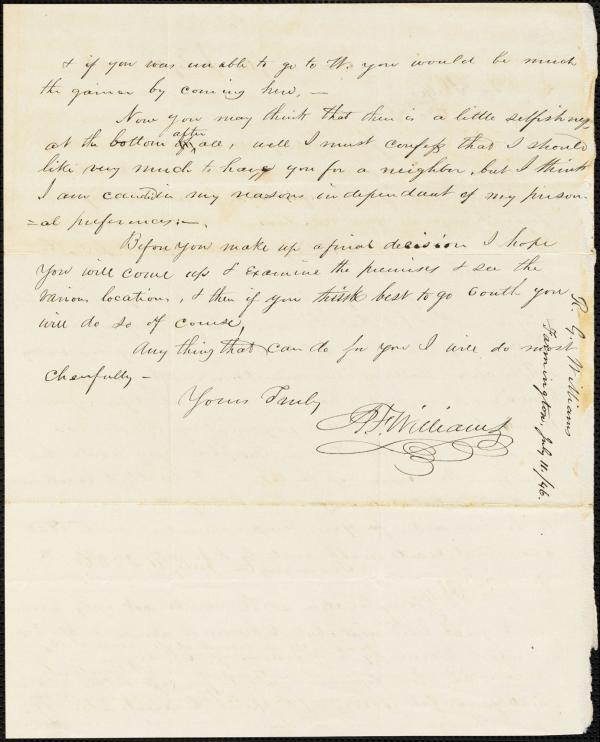 & if you was unable to go to W. you would be much
the gainer by coming here, —
Now you may think that there is a little selfishness
at the bottom after all, well I must confess that I should
like very much to have you for a neighbor, but I think
I am candid in my reasons independant of my person
=al preferences: —
Before you make up a final decision I hope
you will come up & examine the premises & see the
various locations, & then if you think best to go South you
will do so of course,
Any thing that can do for you I will do most
cheerfully —
Yours Truly
Williams
R. G. Williams
Farmington, July 11. /46.